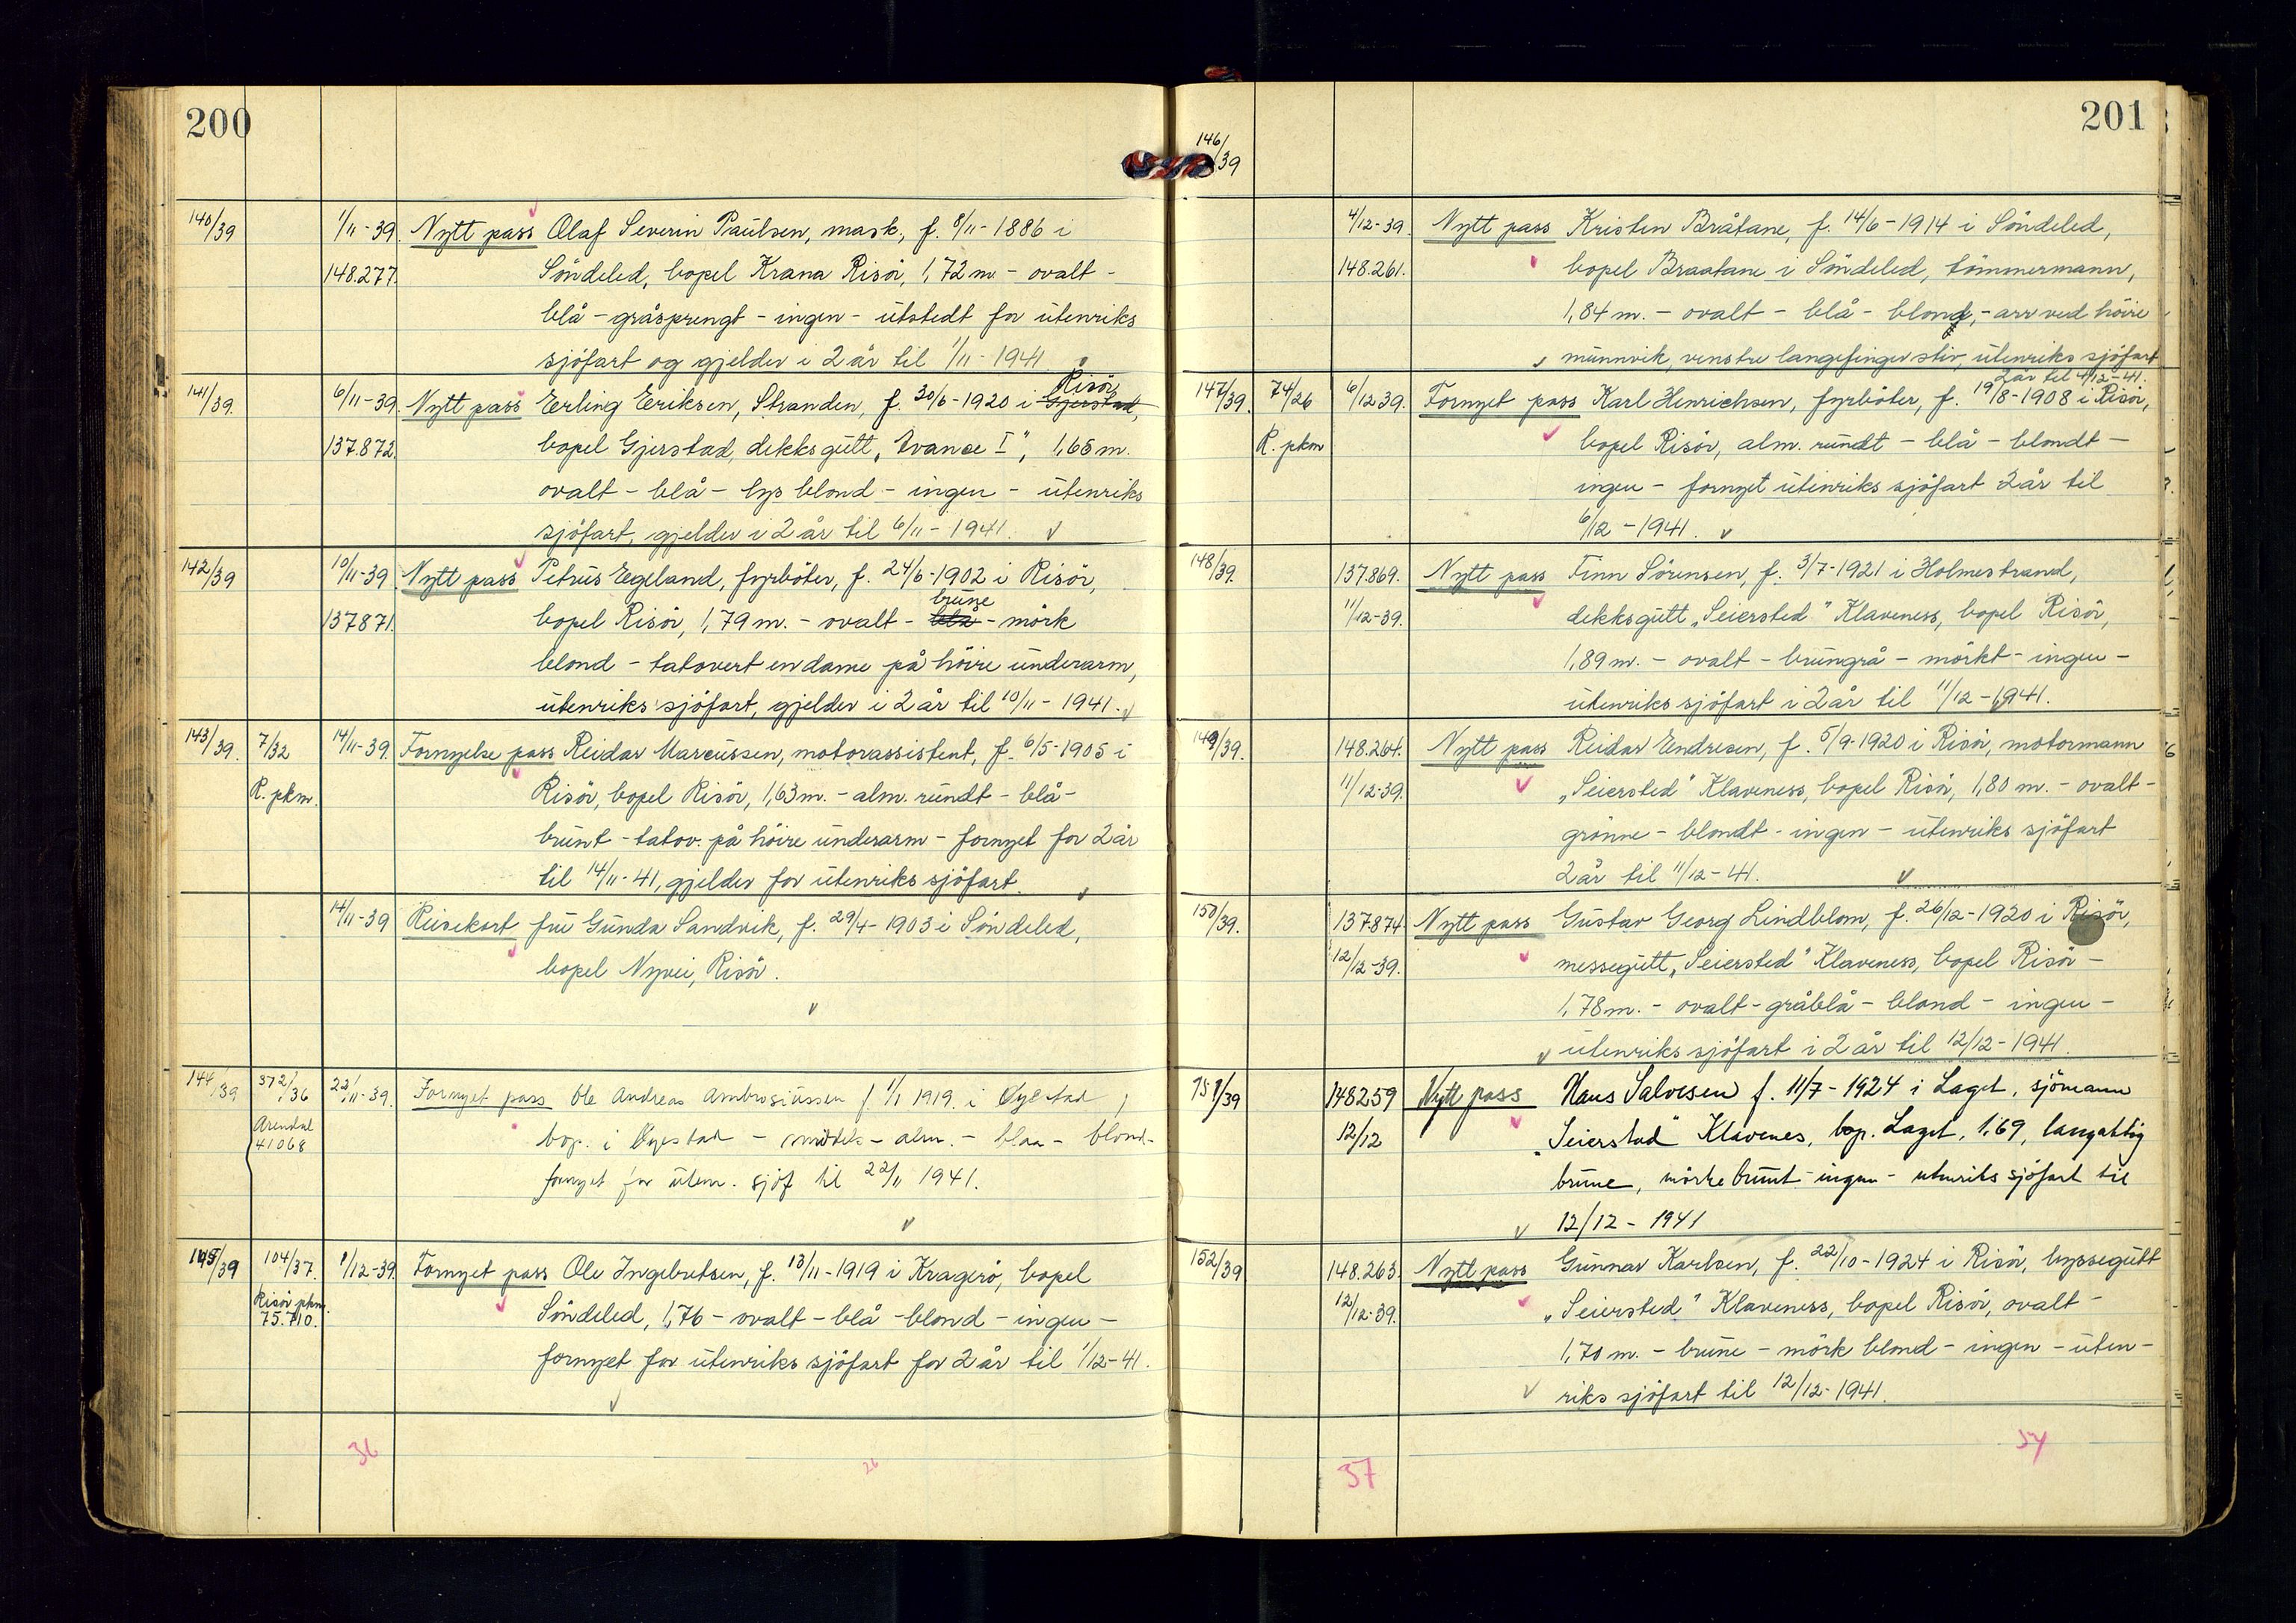 200
140/39 1/11-39. Nytt pass Olaf Severin Paulsen, mask., f. 8/11-1886 i
148.277. Söndeled, bopel Krana Risör, 1,72 m - ovalt -
blå - gråsprengt - ingen - utstedt for utenriks
sjöfart og gjelder i 2 år til 1/11-1941
141/39. 6/11-39. Nytt pass Erling Eriksen, Stranden, f. 30/6-1920 i Gjerstad, Risör,
137.872. bopel Gjerstad, dekksgutt „Evanse I", 1,65 m.
ovalt - blå - lys blond - ingen - utenriks
sjöfart, gjelder i 2 år til 6/11-1941.
142/39 10/11-39 Nytt pass Petrus Egeland, fyrböter, f. 24/6-1902 i Risör,
brune
137871. bopel Risör, 1,79 m. - ovalt - blå - mörk
blond - tatovert en dame på höire underarm,
utenriks sjöfart, gjelder i 2 år til 10/11-1941.
143/39. 7/32 14/11-39. Fornyelse pass Reidar Marcussen, motorassistent, f. 6/5-1905 i
R. pkm. Risör, bopel Risör, 1,63 m. - alm. rundt - blå -
brunt - tatov. på höire underarm - fornyet for 2 år
til 14/11-41, gjelder for utenriks sjöfart.
14/11-39 Reisekort fru Gunda Sandvik, f. 29/4-1903 i Söndeled,
bopel Nyvei, Risör.
144/39 372/36 22/11-39. Fornyet pass Ole Andreas Ambrosiussen f 1/1 1919. i Öyestad,
Arendal bop. i Öyestad - middels - alm. - blaa - blond -
41068
fornyet for utenr. sjöf til 22/11 1941.
145/39 104/37. 1/12-39. Fornyet pass Ole Ingebretsen, f. 13/11-1919 i Kragerö, bopel
Risör pkm. Söndeled, 1,76 - ovalt - blå - blond - ingen -
75.710.
fornyet for utenriks sjöfart for 2 år til 1/12-41.
36 26
201
146/39
4/12-39. Nytt pass Kristen Bråtane, f. 14/6-1914 i Söndeled,
148.261. bopel Braatane i Söndeled, tömmermann,
1,84 m. - ovalt - blå - blond, - arr ved höire
munnvik, venstre langefinger stiv, utenriks sjöfart
2 år til 4/12-41.
147/39. 74/26 6/12-39. Fornyet pass Karl Henrichsen, fyrböter, f. 19/8-1908 i Risör,
R. pkm bopel Risör, alm. rundt - blå - blondt -
ingen - fornyet utenriks sjöfart 2 år til
6/12-1941.
148/39. 137.869. Nytt pass Finn Sörensen, f. 3/7-1921 i Holmestrand,
11/12-39. dekksgutt „Seiersted" Klaveness, bopel Risör,
1,89 m. - ovalt - brungrå - mörkt - ingen -
utenriks sjöfart i 2 år til 11/12-1941.
149/39. 148.264. Nytt pass Reidar Endresen, f. 5/9-1920 i Risör, motormann
11/12-39. „Seiersted" Klaveness, bopel Risör, 1,80 m. - ovalt -
grönne - blondt - ingen - utenriks sjöfart
2 år til 11/12-41.
150/39. 137.874. Nytt pass Gustav Georg Lindblom, f. 26/12-1920 i Risör,
12/12-39. messegutt „Seiersted" Klaveness, bopel Risör -
1,78 m. - ovalt - gråblå - blond - ingen -
utenriks sjöfart i 2 år til 12/12-1941.
151/39 148259 Nytt pass Hans Salvesen f. 11/7-1924 i Laget, sjömann
12/12 „Seierstad" Klavenes, bop. Laget, 1.69, langaktig
brune, mörke brunt - ingen - utenriks sjöfart til
12/12-1941
152/39 148.263. Nytt pass Gunnar Karlsen, f. 22/10-1924 i Risör, byssegutt
12/12-39. „Seiersted" Klaveness, bopel Risör, ovalt -
1,70 m. - brune - mörk blond - ingen - uten-
riks sjöfart til 12/12-1941.
37